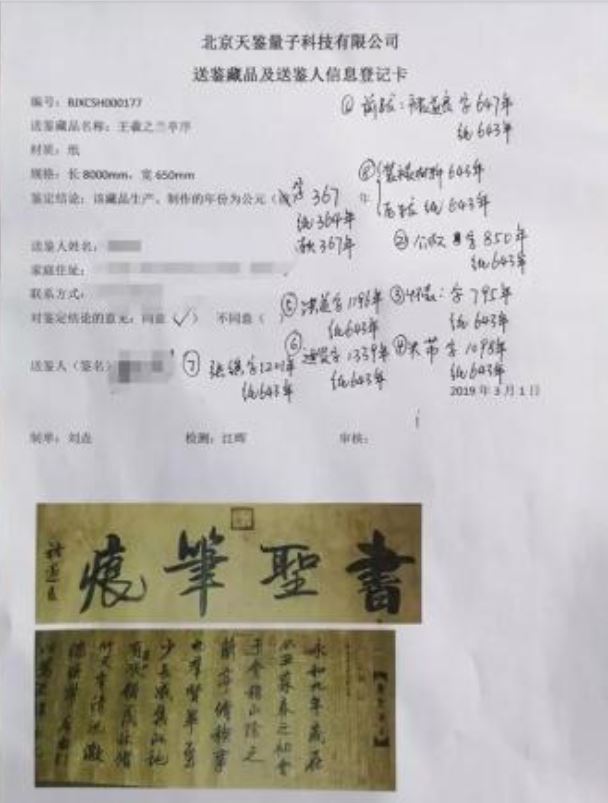 北京天鉴量子科技有限公司
送鉴藏品及送鉴人信息登记卡
编号：BJXCSH000177
送鉴藏品名称：王羲之兰亭序
材质：纸
规格：长8000mm，宽650mm
鉴定结论：该藏品生产、制作的年份为公元（ 字367 年
纸364年
367年
送鉴人姓名：
家庭住址：
联系方式：
对鉴定结论的意见：同意（✓） 不同意（ ）
送鉴人（签名）
① 前段：褚遂良 字647年
纸643年
⑧ 643年
纸643年
② 公权 字850年
纸643年
③ 怀素：字795年
纸643年
④ 米芾 字1098年
纸643年
⑤ 字1196年
纸643年
⑥ 字1339年
纸643年
⑦ 字1202年
纸643年
2019年3月1日
制单：刘垚 检测：江晖 审核：
書聖筆痕
褚遂良
永和九年歲在
癸丑暮春之初會
于會稽山陰之
蘭亭脩稧事
也羣賢畢至
少長咸集此地
有峻領茂林脩
竹又有清流激